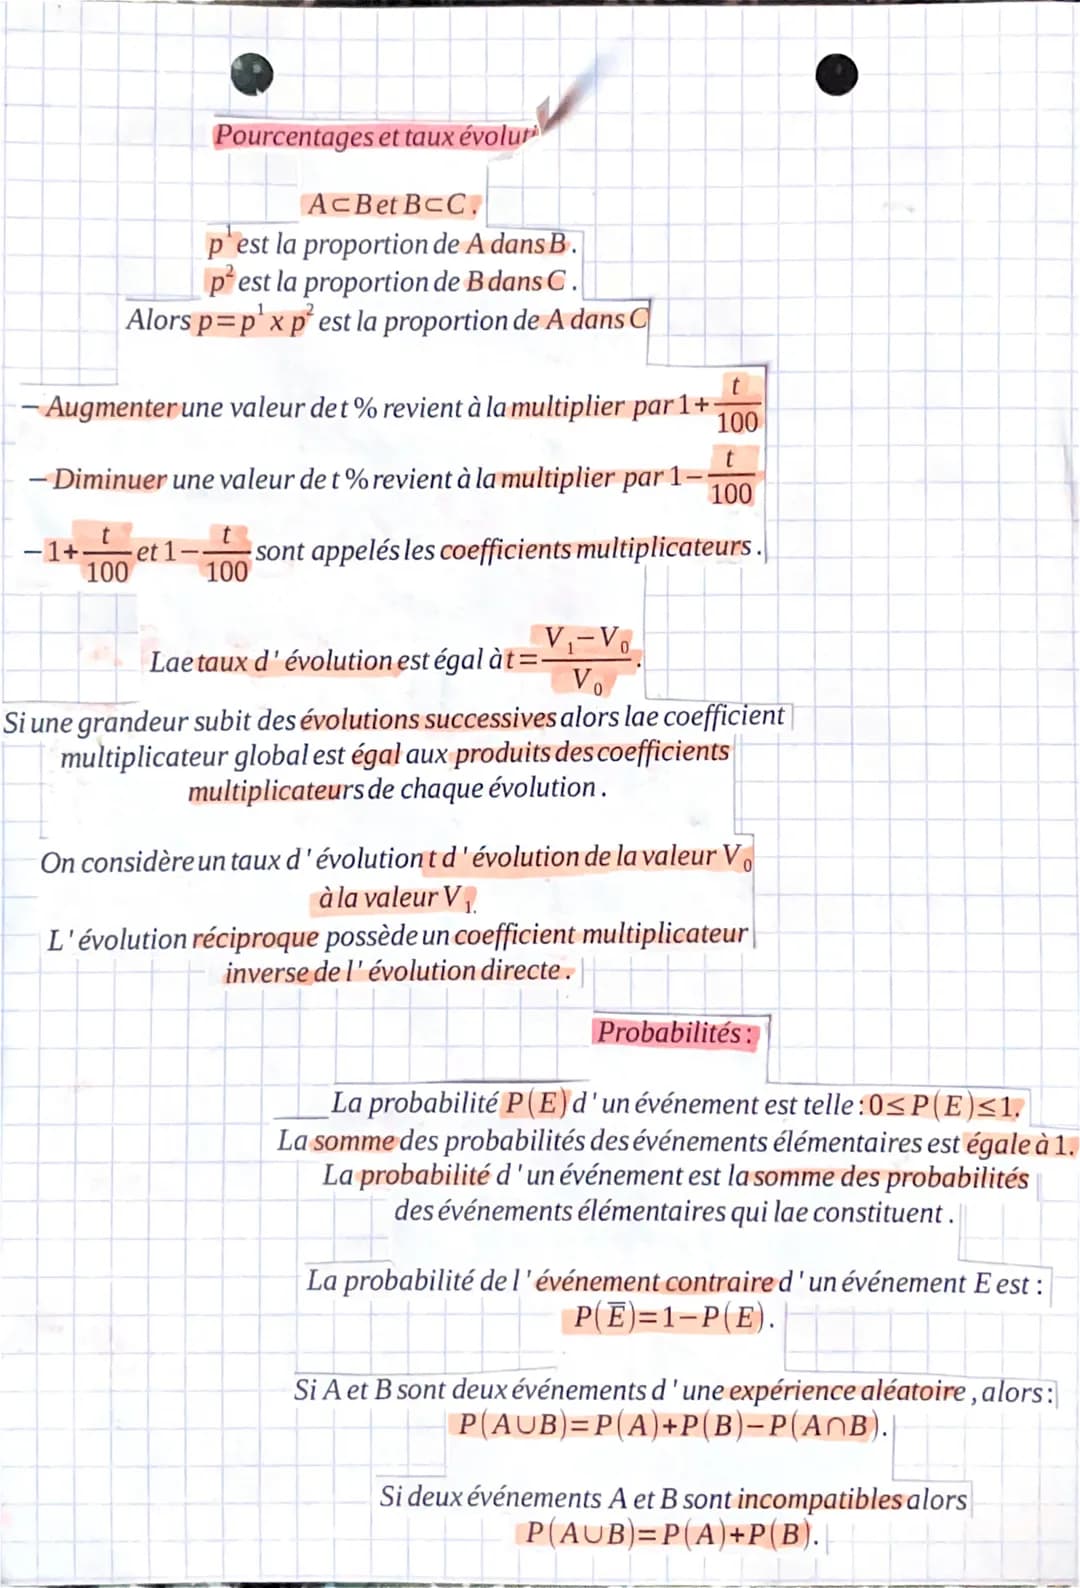 Pourcentages et taux évoluti
A⊂B et B⊂C.
p¹ est la proportion de A dans B.
p² est la proportion de B dans C.
Alors p=p¹ x p² est la proportion de A dans C
– Augmenter une valeur de t % revient à la multiplier par 1+t/100
– Diminuer une valeur de t % revient à la multiplier par 1–t/100
–1+t/100 et 1–t/100 sont appelés les coefficients multiplicateurs.
Lae taux d'évolution est égal à t=(V₁–V₀)/V₀.
Si une grandeur subit des évolutions successives alors lae coefficient
multiplicateur global est égal aux produits des coefficients
multiplicateurs de chaque évolution.
On considère un taux d'évolution t d'évolution de la valeur V₀
à la valeur V₁.
L'évolution réciproque possède un coefficient multiplicateur
inverse de l'évolution directe.
Probabilités:
La probabilité P(E) d'un événement est telle : 0≤P(E)≤1.
La somme des probabilités des événements élémentaires est égale à 1.
La probabilité d'un événement est la somme des probabilités
des événements élémentaires qui lae constituent.
La probabilité de l'événement contraire d'un événement E est :
P(E̅)=1–P(E).
Si A et B sont deux événements d'une expérience aléatoire, alors:
P(A∪B)=P(A)+P(B)–P(A∩B).
Si deux événements A et B sont incompatibles alors
P(A∪B)=P(A)+P(B).